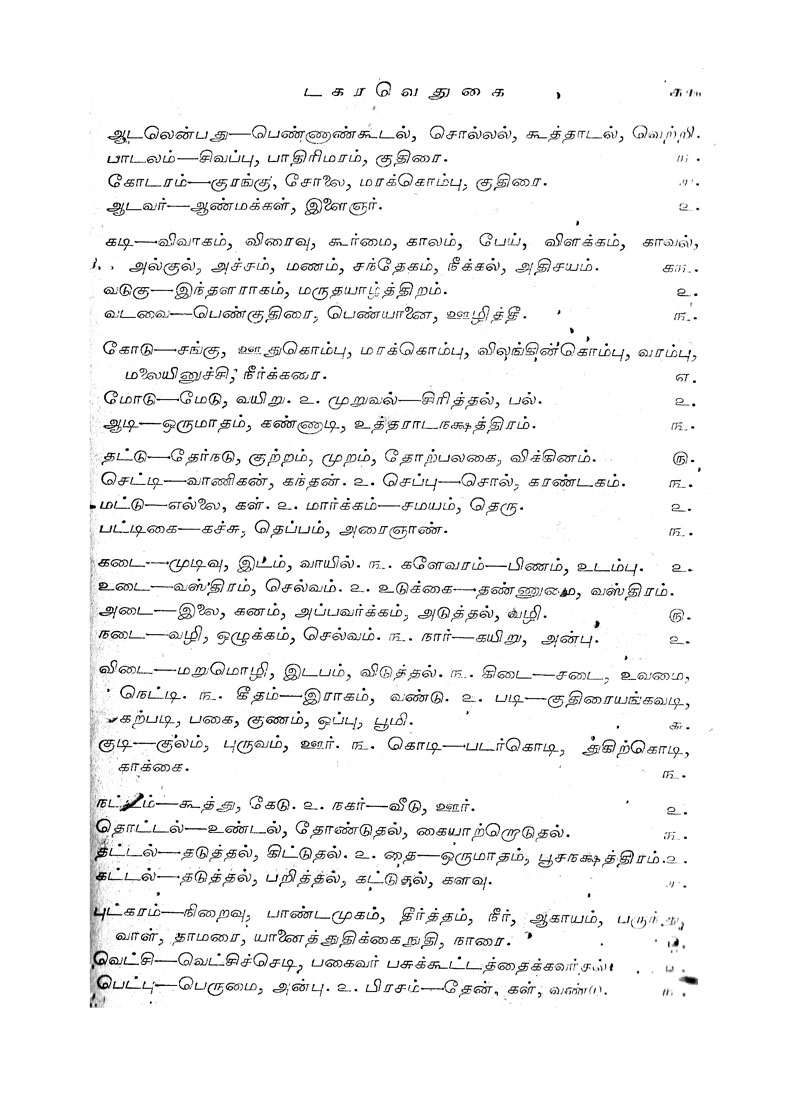 டகரவெதுகை
ஆடலென்பது—பெண்ணாண்கூடல், சொல்லல், கூத்தாடல், வெற்றி.
பாடலம்—சிவப்பு, பாதிரிமரம், குதிரை. ௩.
கோடரம்—குரங்கு, சோலை, மரக்கொம்பு, குதிரை. ௪.
ஆடவர்—ஆண்மக்கள், இளைஞர். ௨.
கடி—விவாகம், விரைவு, கூர்மை, காலம், பேய், விளக்கம், காவல்,
அல்குல், அச்சம், மணம், சந்தேகம், நீக்கல், அதிசயம். ௧௩.
வடுகு—இந்தளராகம், மருதயாழ்த்திறம். ௨.
வடவை—பெண்குதிரை, பெண்யானை, ஊழித்தீ. ௩.
கோடு—சங்கு, ஊதுகொம்பு, மரக்கொம்பு, விலங்கின்கொம்பு, வரம்பு,
மலையினுச்சி, நீர்க்கரை. ௭.
மோடு—மேடு, வயிறு. ௨. முறுவல்—சிரித்தல், பல். ௨.
ஆடி—ஒருமாதம், கண்ணாடி, உத்தராடநக்ஷத்திரம். ௩.
தட்டு—தேர்நடு, குற்றம், முறம், தோற்பலகை, விக்கினம். ௫.
செட்டி—வாணிகன், கந்தன். ௨. செப்பு—சொல், கரண்டகம். ௩.
மட்டு—எல்லை, கள். ௨. மார்க்கம்—சமயம், தெரு. ௨.
பட்டிகை—கச்சு, தெப்பம், அரைஞாண். ௩.
கடை—முடிவு, இடம், வாயில். ௩. களேவரம்—பிணம், உடம்பு. ௨.
உடை—வஸ்திரம், செல்வம். ௨. உடுக்கை— வஸ்திரம்.
அடை—இலை, கனம், அப்பவர்க்கம், அடுத்தல், வழி. ௫.
நடை—வழி, ஒழுக்கம், செல்வம். ௩. நார்—கயிறு, அன்பு. ௨.
விடை—மறுமொழி, இடபம், விடுத்தல். ௩. கிடை—சடை, உவமை,
நெட்டி. ௩. கீதம்—இராகம், வண்டு. ௨. படி—குதிரையங்கவடி,
கற்படி, பகை, குணம், ஒப்பு, பூமி. ௬.
குடி—குலம், புருவம், ஊர். ௩. கொடி—படர்கொடி, துகிற்கொடி,
காக்கை. ௩.
நட்டம்—கூத்து, கேடு. ௨. நகர்—வீடு, ஊர். ௨.
தொட்டல்—உண்டல், தோண்டுதல், கையாற்றொடுதல். ௩.
தட்டல்—தடுத்தல், கிட்டுதல். ௨. தை—ஒருமாதம், பூசநக்ஷத்திரம். ௨.
கட்டல்—தடுத்தல், பறித்தல், கட்டுதல், களவு. ௪.
புட்கரம்—நிறைவு, பாண்டமுகம், தீர்த்தம், நீர், ஆகாயம், பருந்து,
வாள், தாமரை, யானைத்துதிக்கைநுதி, நாரை.
வெட்சி—வெட்சிச்செடி, பகைவர் பசுக்கூட்டத்தைக்கவர்தல்
பெட்பு—பெருமை, அன்பு. ௨. பிரசம்—தேன், கள், வண்டு. ௩.